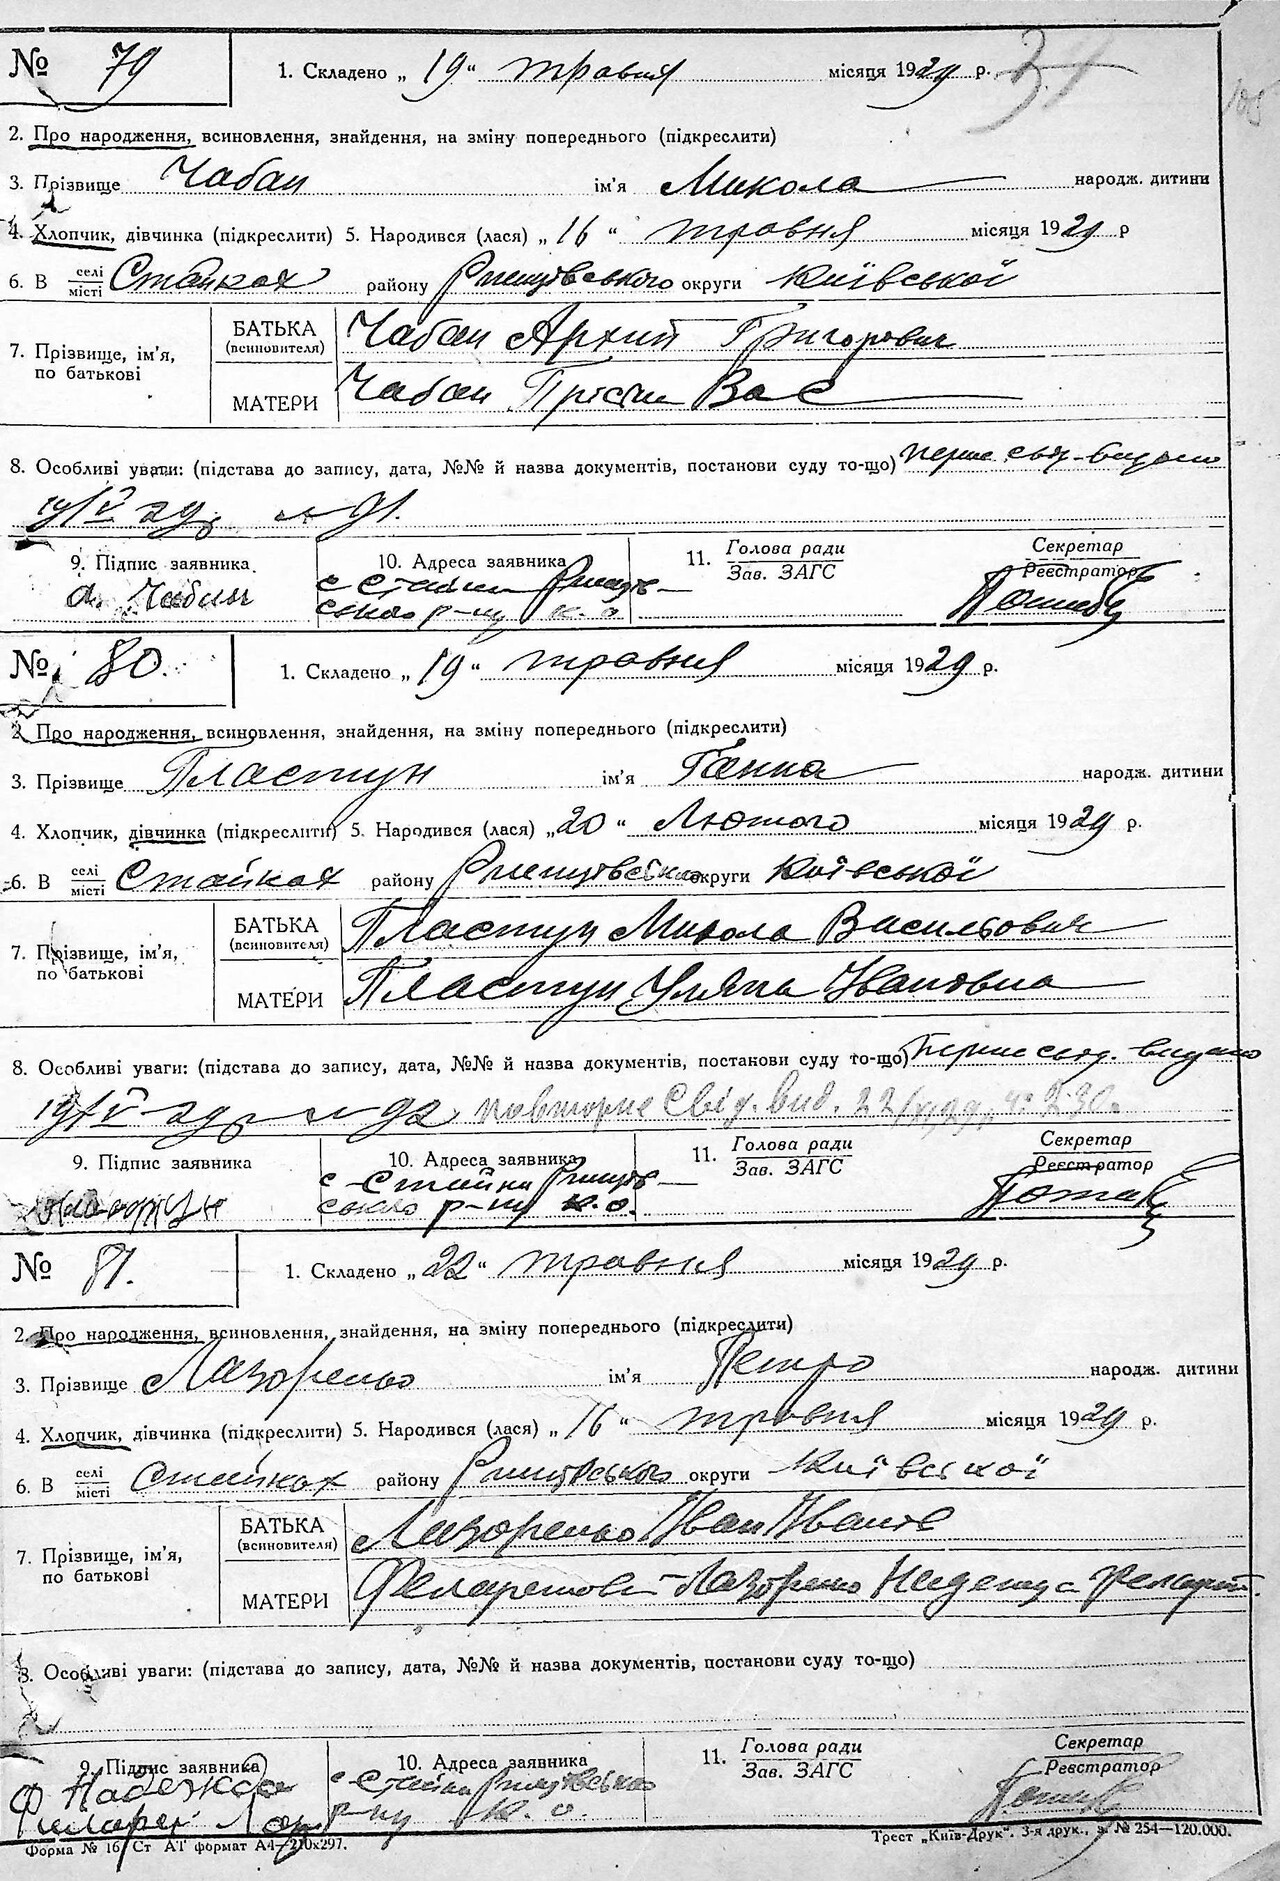 № 79 1. Складено „19" травня місяця 1929 р.
2. Про народження, всиновлення, знайдення, на зміну попереднього (підкреслити)
3. Прізвище Чабан ім'я Микола народж. дитини
4. Хлопчик, дівчинка (підкреслити) 5. Народився (лася) „16" травня місяця 1929 р
6. В селі місті Стайках району Ржищівського округи Київської
7. Прізвище, ім'я, по батькові
БАТЬКА (всиновителя) Чабан Архип Григорович
МАТЕРИ Чабан Прісіи Вас
8. Особливі уваги: (підстава до запису, дата, №№ й назва документів, постанови суду то-що) перше свід. видано
19/V 29 р № 91.
9. Підпис заявника 10. Адреса заявника 11. Голова ради Зав. ЗАГС Секретар Реєстратор
А. Чабан с Стайки Ржищів-
ського р-ну К. О.
№ 80. 1. Складено „19" травня місяця 1929 р.
2. Про народження, всиновлення, знайдення, на зміну попереднього (підкреслити)
3. Прізвище Пластун ім'я Ганна народж. дитини
4. Хлопчик, дівчинка (підкреслити) 5. Народився (лася) „20" Лютого місяця 1929 р.
6. В селі місті Стайках району Ржищівсько округи Київської
7. Прізвище, ім'я, по батькові
БАТЬКА (всиновителя) Пластун Микола Васильович
МАТЕРИ Пластун Уляна Івановна
8. Особливі уваги: (підстава до запису, дата, №№ й назва документів, постанови суду то-що) перше свід. видано
19/V 29 р № 92 повторне Свід. вид. 22/ 29 ч. 230.
9. Підпис заявника 10. Адреса заявника 11. Голова ради Зав. ЗАГС Секретар Реєстратор
с Стайки Ржищів-
ського р-ну К. О.
№ 81. 1. Складено „22" травня місяця 1929 р.
2. Про народження, всиновлення, знайдення, на зміну попереднього (підкреслити)
3. Прізвище Лазоренко ім'я Петро народж. дитини
4. Хлопчик, дівчинка (підкреслити) 5. Народився (лася) „16" травня місяця 1929 р.
6. В селі місті Стайках району Ржищівського округи Київської
7. Прізвище, ім'я, по батькові
БАТЬКА (всиновителя) Лазоренко Іван Іванов
МАТЕРИ Лазоренко
8. Особливі уваги: (підстава до запису, дата, №№ й назва документів, постанови суду то-що)
9. Підпис заявника 10. Адреса заявника 11. Голова ради Зав. ЗАГС Секретар Реєстратор
Надежда с Стайки Ржищівсько
р-ну К. О.
Форма № 16 Ст А1 формат А4—210х297. Трест „Київ-Друк". 3-я друк., з. № 254—120.000.